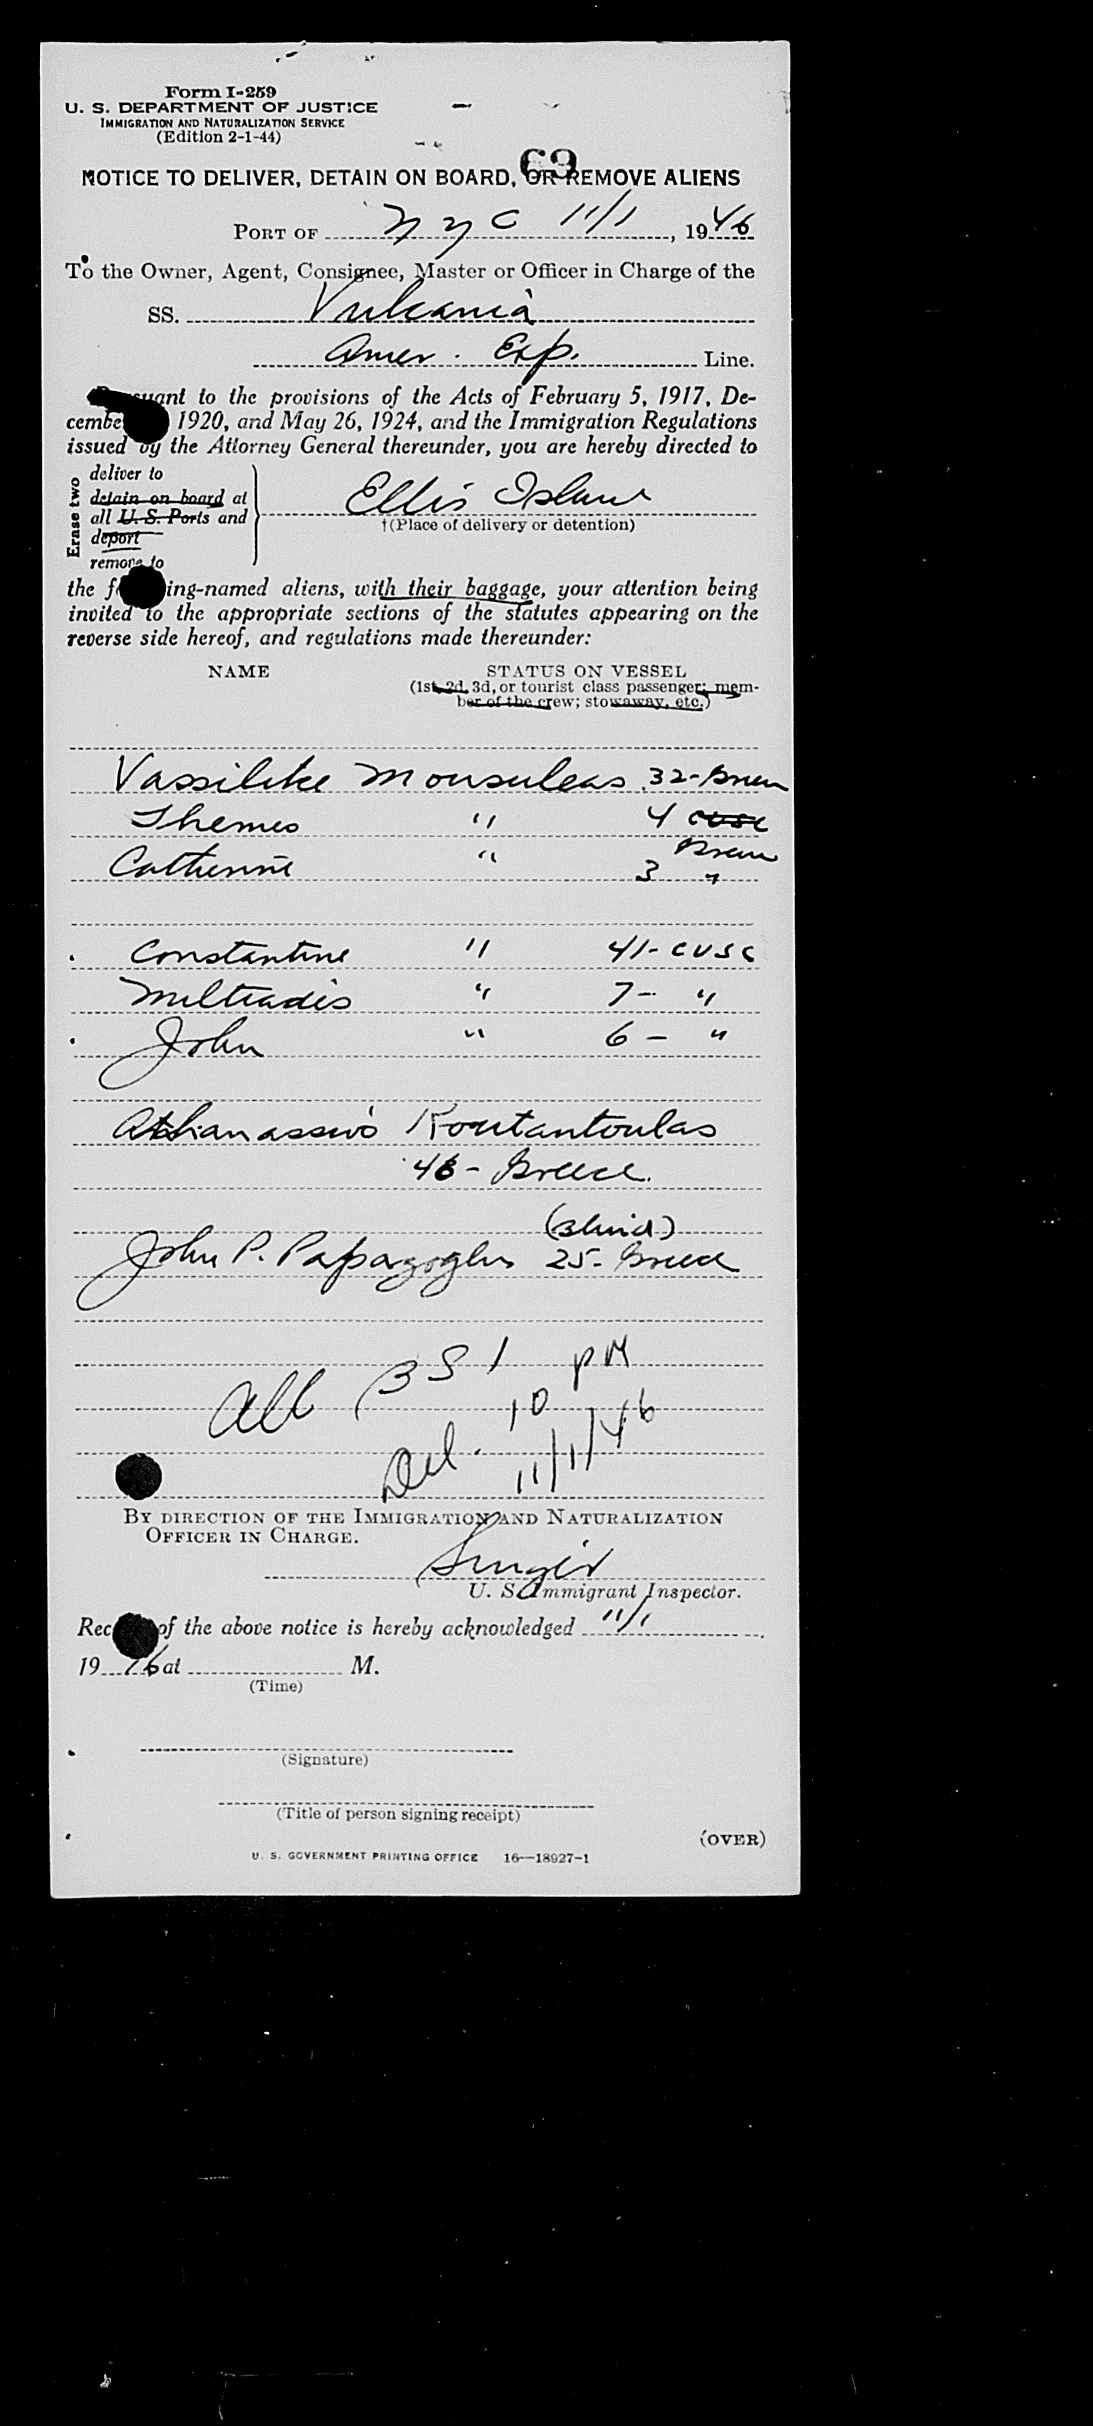 Form I-259
U. S. DEPARTMENT OF JUSTICE
IMMIGRATION AND NATURALIZATION SERVICE
(Edition 2-1-44)
69
NOTICE TO DELIVER, DETAIN ON BOARD, OR REMOVE ALIENS
PORT OF NYC 11/1, 1946
To the Owner, Agent, Consignee, Master or Officer in Charge of the
SS. Vulcania
Amer. Exp. Line.
Pursuant to the provisions of the Acts of February 5, 1917, De-
cember 1920, and May 26, 1924, and the Immigration Regulations
issued by the Attorney General thereunder, you are hereby directed to
Erase two
deliver to
detain on board at
all U. S. Ports and
deport
remove to
Ellis Island
†(Place of delivery or detention)
the following-named aliens, with their baggage, your attention being
invited to the appropriate sections of the statutes appearing on the
reverse side hereof, and regulations made thereunder:
NAME STATUS ON VESSEL
(1st, 2d, 3d, or tourist class passenger; mem-
ber of the crew; stowaway, etc.)
Vassilike Mousuleas 32-Greece
Themes " 4 cusc
Greece
Catherine " 3 "
Constantine " 41- CUSC
Miltiadis " 7- "
John " 6 - "
Athanassios Koutantoulas
46 - Greece.
(Blind)
John P. Papazoglu 25- Greece
All BSI
Del. 10 PM
11/1/46
BY DIRECTION OF THE IMMIGRATION AND NATURALIZATION
OFFICER IN CHARGE.
Singer
U. S. Immigrant Inspector.
Receipt of the above notice is hereby acknowledged 11/1
1946 at M.
(Time)
(Signature)
(Title of person signing receipt)
(OVER)
U. S. GOVERNMENT PRINTING OFFICE 16—18927-1